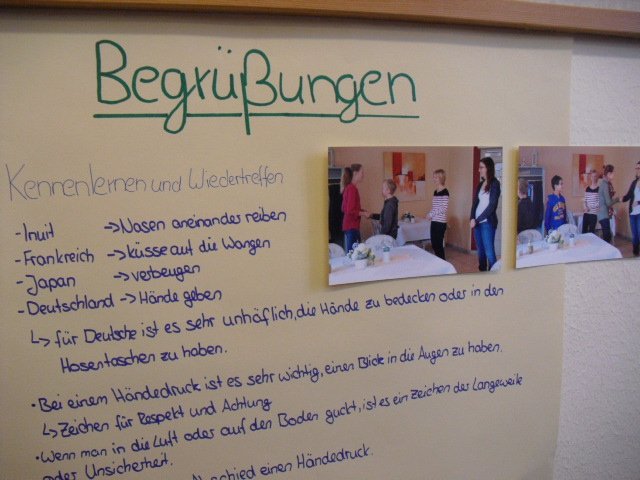 Begrüßungen
Kennenlernen und Wiedertreffen
- Inuit -> Nasen aneinander reiben
- Frankreich -> küsse auf die Wangen
- Japan -> verbeugen
- Deutschland -> Hände geben
↳ für Deutsche ist es sehr unhöflich, die Hände zu bedecken oder in den
Hosentaschen zu haben.
• Bei einem Händedruck ist es sehr wichtig, einen Blick in die Augen zu haben.
↳ Zeichen für Respekt und Achtung
• Wenn man in die Luft oder auf den Boden guckt, ist es ein Zeichen der Langeweile
oder Unsicherheit.
Abschied einen Händedruck.